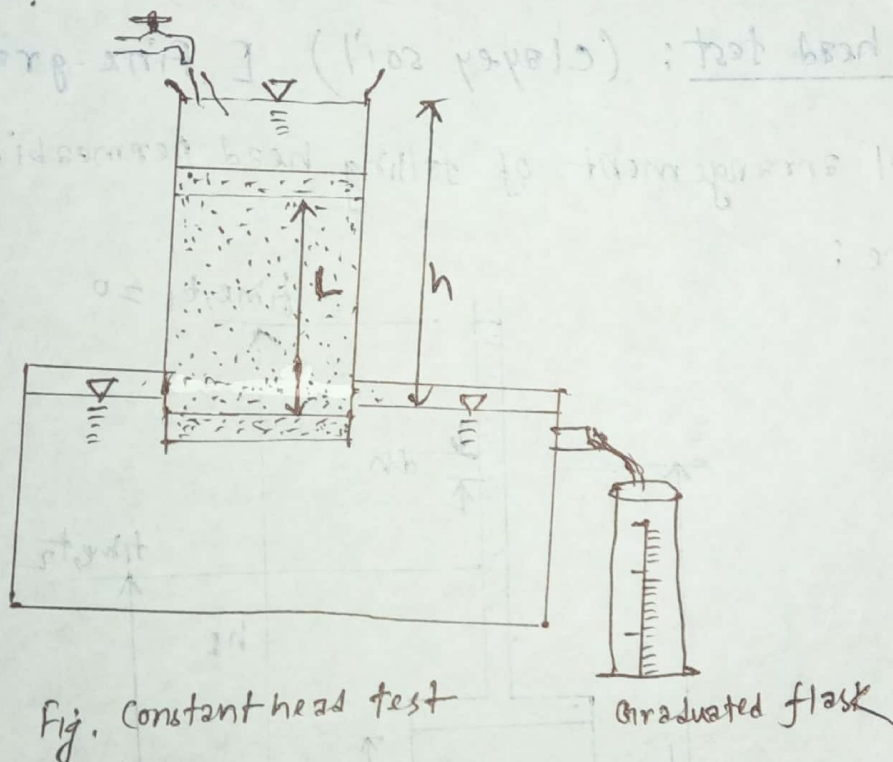 L
h
Fig. Constant head test
Graduated flask